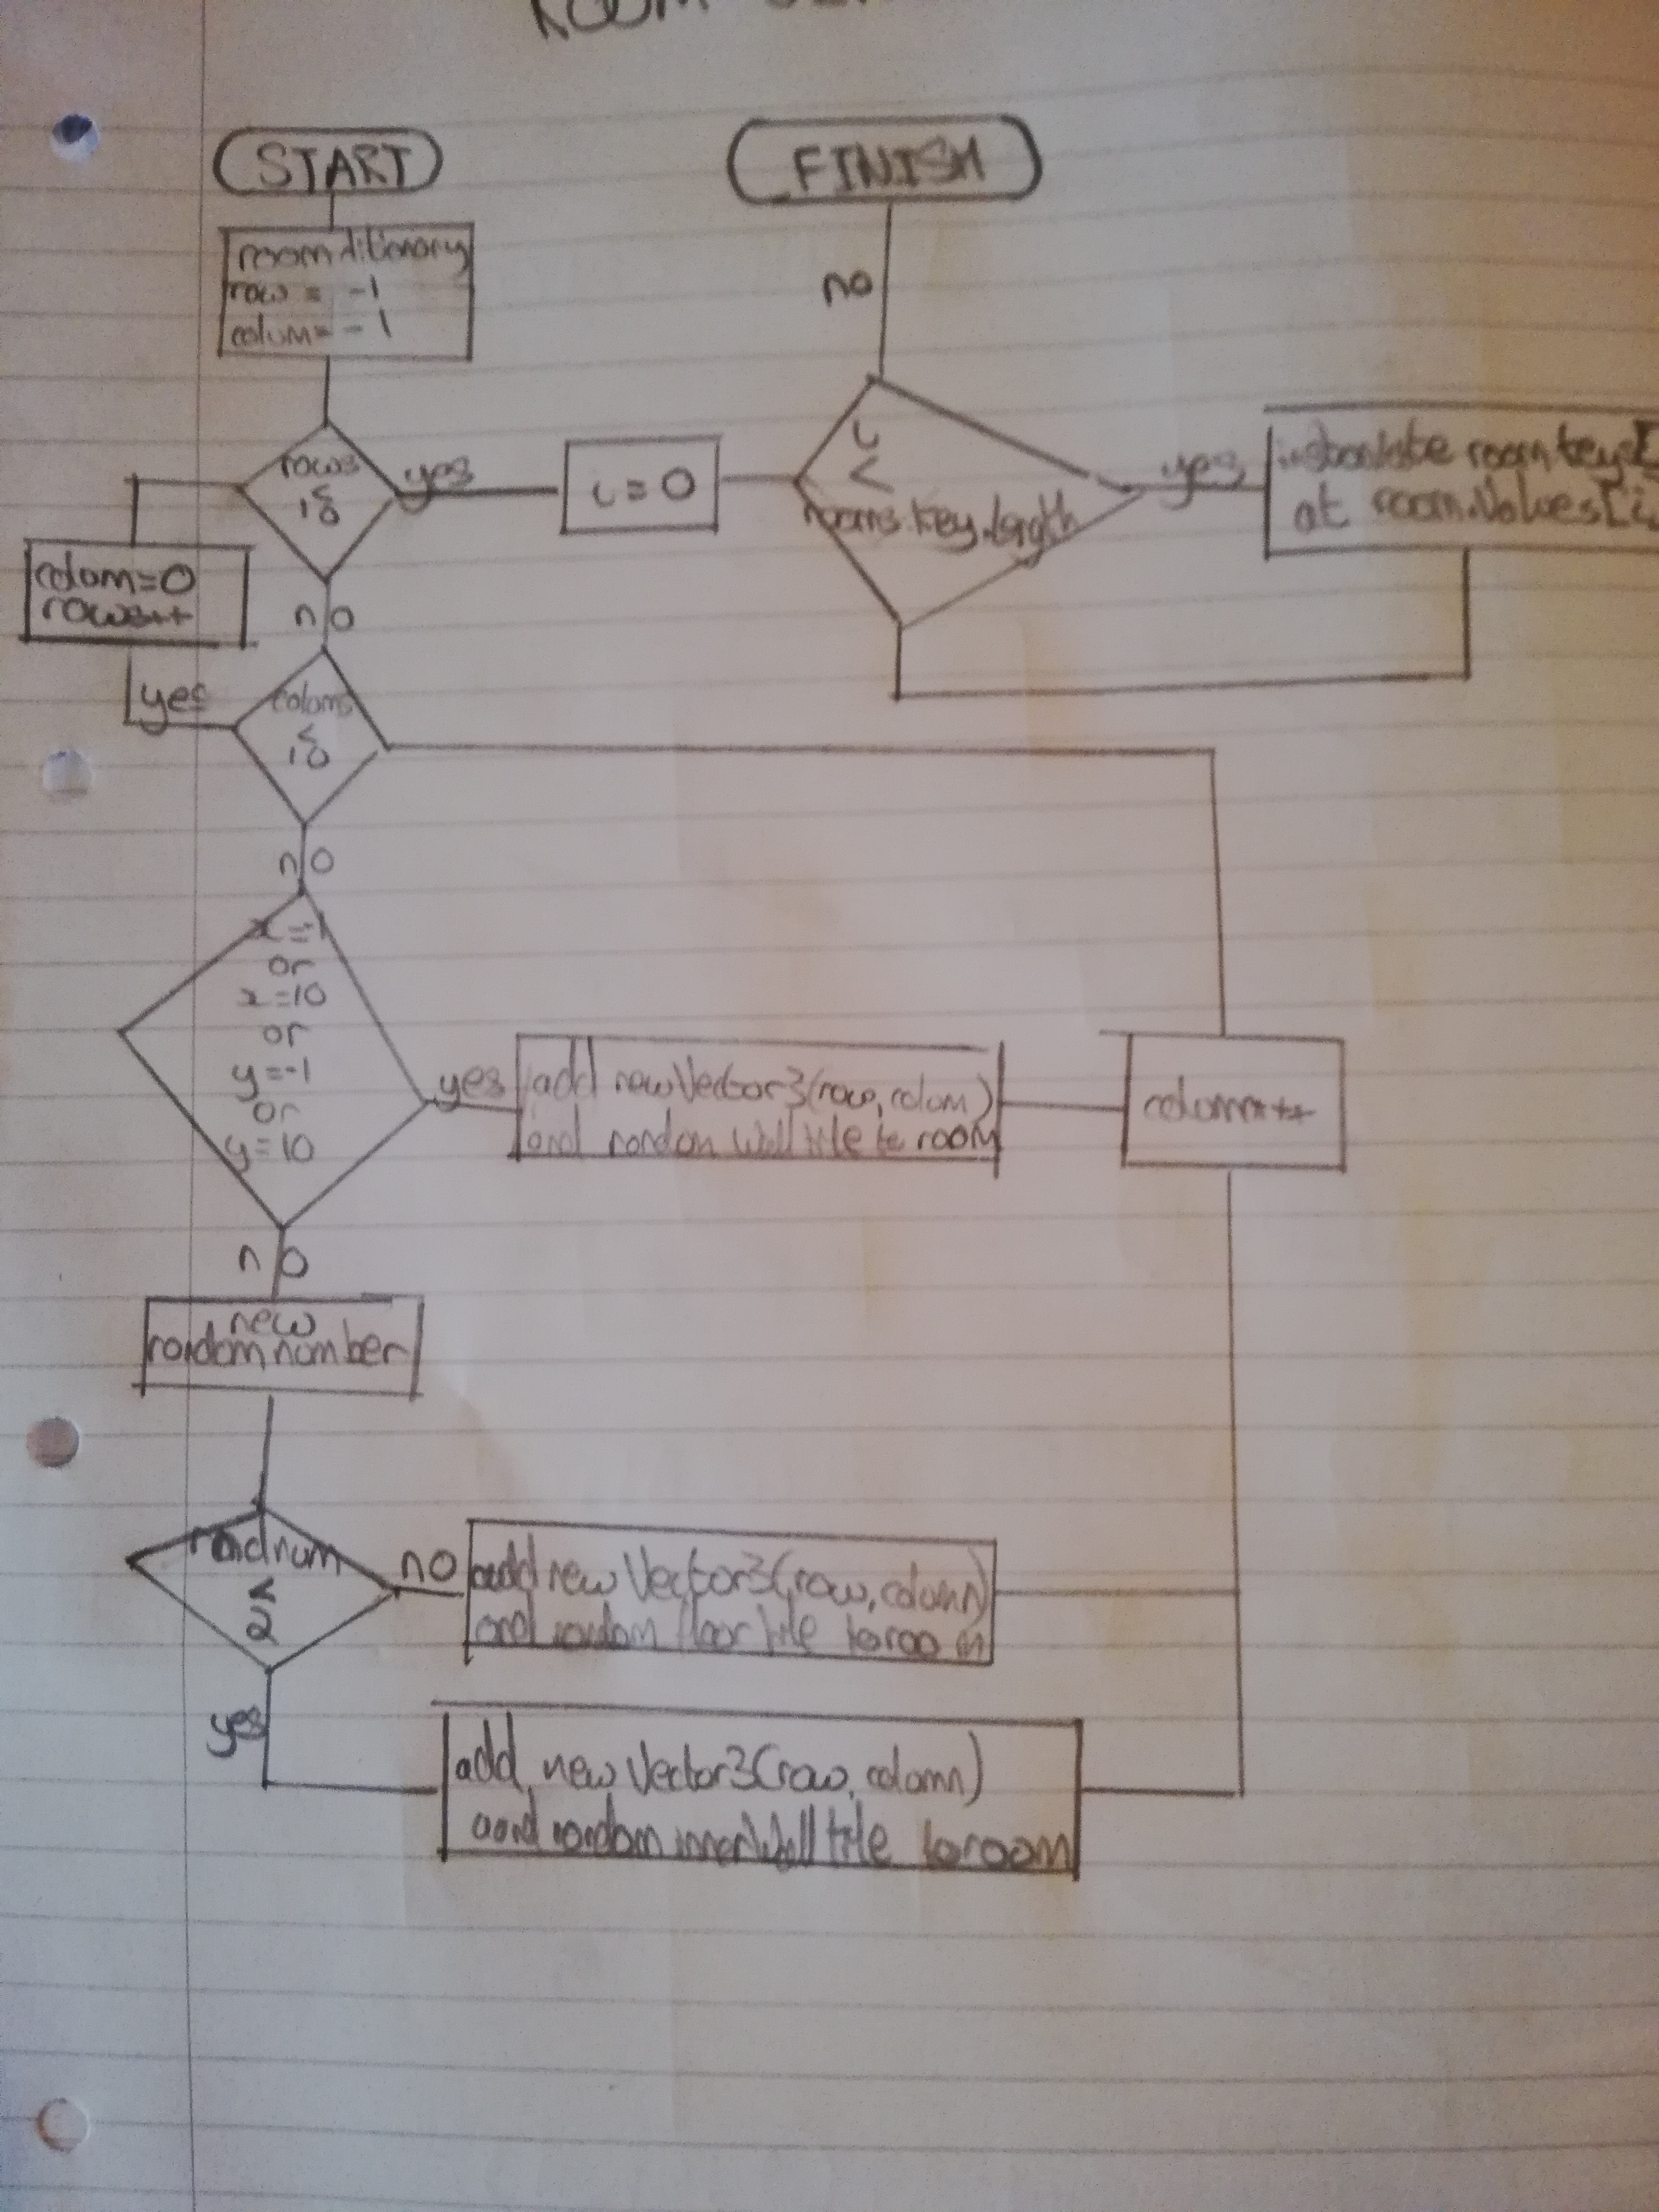 ROOM
START
FINISH
room ditionary
row = -1
colum = -1
no
rows
≤
10
yes
i = 0
i
<
rooms.key.length
yes
instantiate room.keys[
at room.Values[i
colom=0
rows++
no
yes
coloms
≤
10
no
x=-1
or
x=10
or
y=-1
or
y=10
yes
add new Vector3(row, colom)
and random wall tile to room
colomn++
no
new
random number
randnum
≤
2
no
add new Vector3(row, colomn)
and random floor tile to room
yes
add new Vector3(row, colomn)
and random innerWall tile to room